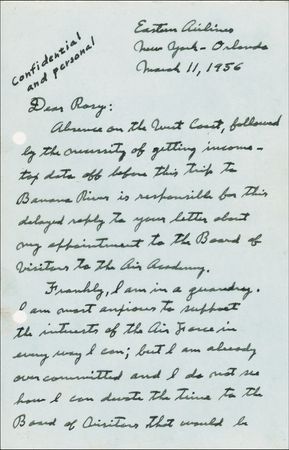 Confidential
and personal
Eastern Airlines
New York - Orlando
March 11, 1956
Dear Rosy:
Absence on the West Coast, followed
by the necessity of getting income-
tax data off before this trip to
Banana River is responsible for this
delayed reply to your letter about
my appointment to the Board of
Visitors to the Air Academy.
Frankly, I am in a quandry.
I am most anxious to support
the interests of the Air Force in
every way I can; but I am already
overcommitted and I do not see
how I can devote the time to the
Board of Visitors that would be